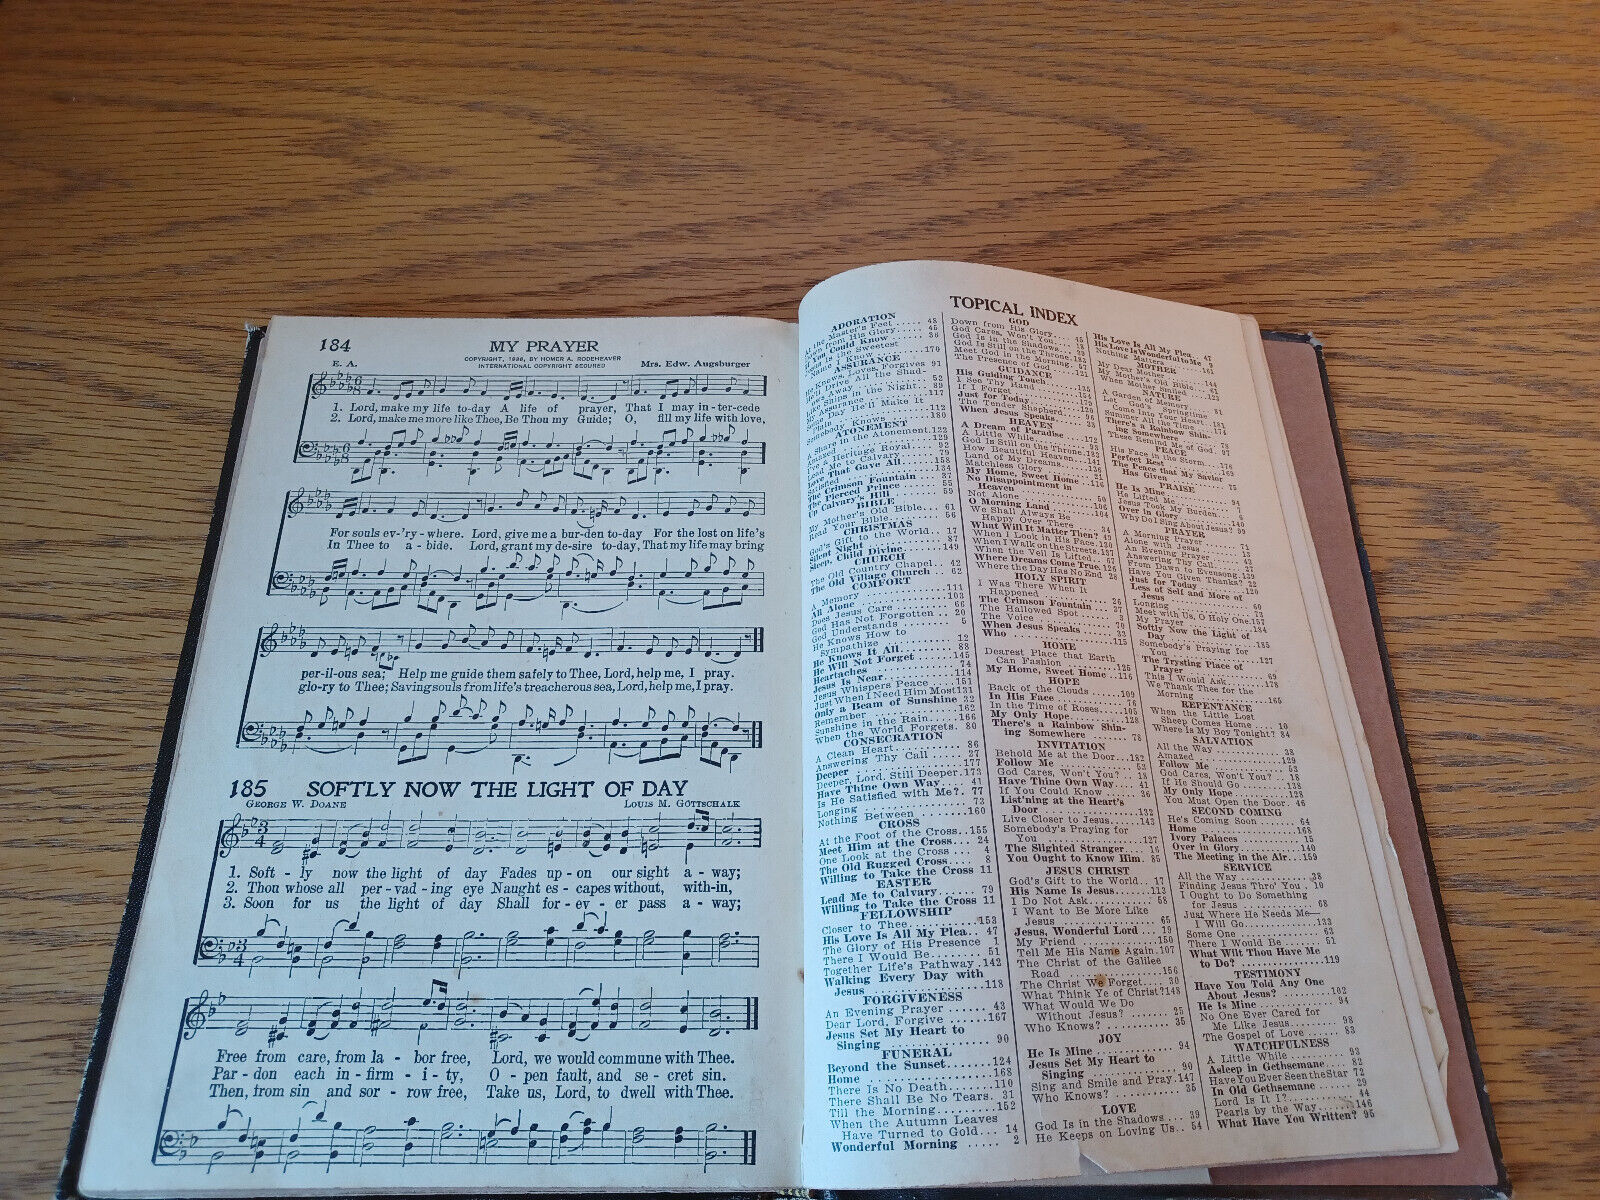 184
MY PRAYER
COPYRIGHT, 1936, BY HOMER A. RODEHEAVER
INTERNATIONAL COPYRIGHT SECURED
E. A.
Mrs. Edw. Augsburger
1. Lord, make my life to-day A life of prayer, That I may in-ter-cede
2. Lord, make me more like Thee, Be Thou my Guide; O, fill my life with love,
For souls ev-'ry-where. Lord, give me a bur-den to-day For the lost on life's
In Thee to a-bide. Lord, grant my de-sire to-day, That my life may bring
per-il-ous sea; Help me guide them safely to Thee, Lord, help me, I pray.
glo-ry to Thee; Saving souls from life's treacherous sea, Lord, help me, I pray.
185 SOFTLY NOW THE LIGHT OF DAY
GEORGE W. DOANE
LOUIS M. GOTTSCHALK
1. Soft - ly now the light of day Fades up-on our sight a-way;
2. Thou whose all per-vad-ing eye Naught es-capes without, with-in,
3. Soon for us the light of day Shall for-ev-er pass a-way;
Free from care, from la-bor free, Lord, we would commune with Thee.
Par-don each in-firm-i-ty, O-pen fault, and se-cret sin.
Then, from sin and sor-row free, Take us, Lord, to dwell with Thee.
TOPICAL INDEX
ADORATION
ASSURANCE
ATONEMENT
The Crimson Fountain
The Pierced Prince
Up Calvary's Hill
BIBLE
My Mother's Old Bible... 61
Read Your Bible
CHRISTMAS
God's Gift to the World.. 17
Silent Night
Sleep, Child Divine......149
CHURCH
The Old Country Chapel.. 42
The Old Village Church .. 62
COMFORT
A Memory ........111
All Alone ........103
Does Jesus Care ...... 66
God Has Not Forgotten .. 20
God Understands ...... 5
He Knows How to
Sympathize ...... 12
He Knows It All. ...... 83
He Will Not Forget ......145
Heartaches ...... 74
Jesus Is Near ......114
Jesus Whispers Peace ....151
Just When I Need Him Most 121
Only a Beam of Sunshine .. 32
Remember ......162
Sunshine in the Rain.....166
When the World Forgets. 80
CONSECRATION
A Clean Heart ...... 86
Answering Thy Call ...... 27
Deeper ......177
Deeper, Lord, Still Deeper.173
Have Thine Own Way .... 41
Is He Satisfied with Me?. 77
Longing ...... 72
Nothing Between ......160
CROSS
At the Foot of the Cross..155
Meet Him at the Cross... 24
One Look at the Cross... 4
The Old Rugged Cross.... 8
Willing to Take the Cross 11
EASTER
Lead Me to Calvary...... 79
Willing to Take the Cross 11
FELLOWSHIP
Closer to Thee..........153
His Love Is All My Plea.. 47
The Glory of His Presence 1
There I Would Be....... 51
Together Life's Pathway.142
Walking Every Day with
Jesus ......118
FORGIVENESS
An Evening Prayer ...... 43
Dear Lord, Forgive ......167
Jesus Set My Heart to
Singing ...... 90
FUNERAL
Beyond the Sunset.......124
Home ......168
There Is No Death......110
There Shall Be No Tears. 31
Till the Morning........152
When the Autumn Leaves
Have Turned to Gold... 14
Wonderful Morning ..... 2
GOD
Down from His Glory
God Cares, Won't You
God Is in the Shadows
God Is Still on the Throne
Meet God in the Morning
The Presence of God
GUIDANCE
His Guiding Touch
I See Thy Hand
If I Forget
Just for Today
The Tender Shepherd
When Jesus Speaks
HEAVEN
A Dream of Paradise
A Little While
God Is Still on the Throne
How Beautiful Heaven
Land of My Dreams
Matchless Glory
My Home, Sweet Home
No Disappointment in
Heaven
Not Alone
O Morning Land
We Shall Always Be
Happy Over There
What Will It Matter Then?
When I Look in His Face
When I Walk on the Streets
When the Veil Is Lifted
Where Dreams Come True
Where the Day Has No End
HOLY SPIRIT
I Was There When It
Happened
The Crimson Fountain
The Hallowed Spot
The Voice
When Jesus Speaks
Who
HOME
Dearest Place that Earth
Can Fashion ......125
My Home, Sweet Home ..116
HOPE
Back of the Clouds ......109
In His Face ...... 76
In the Time of Roses.....105
My Only Hope..........128
There's a Rainbow Shin-
ing Somewhere ...... 78
INVITATION
Behold Me at the Door...182
Follow Me ...... 53
God Cares, Won't You? .. 18
Have Thine Own Way.... 41
If You Could Know ..... 36
List'ning at the Heart's
Door ......132
Live Closer to Jesus......143
Somebody's Praying for
You ......127
The Slighted Stranger ... 16
You Ought to Know Him. 85
JESUS CHRIST
God's Gift to the World.. 17
His Name Is Jesus.......113
I Do Not Ask .......... 58
I Want to Be More Like
Jesus ...... 65
Jesus, Wonderful Lord .. 19
My Friend ......150
Tell Me His Name Again.107
The Christ of the Galilee
Road ......156
The Christ We Forget.... 30
What Think Ye of Christ?148
What Would We Do
Without Jesus? ...... 25
Who Knows? .......... 35
JOY
He Is Mine ............ 94
Jesus Set My Heart to
Singing ...... 90
Sing and Smile and Pray.147
Who Knows? .......... 35
LOVE
God Is in the Shadows... 39
He Keeps on Loving Us.. 54
His Love Is All My Plea.. 47
His Love Is Wonderful to Me 9
Nothing Matters
MOTHER
My Dear Mother
My Mother's Old Bible
When Mother Smiled
NATURE
A Garden of Memory
Let God's Springtime
Come Into Your Heart
Summer All the Time
There's a Rainbow Shin-
ing Somewhere
These Remind Me of God
PEACE
His Face in the Storm
Perfect Rest
The Peace that My Savior
Has Given
PRAISE
He Is Mine
He Lifted Me
Jesus Took My Burden
Over in Glory
Why Do I Sing About Jesus? 59
PRAYER
A Morning Prayer
Alone with Jesus
An Evening Prayer
Dear Lord, Forgive
From Dawn to Evensong
Have You Given Thanks?
Just for Today
Less of Self and More of
Jesus
Longing
Meet with Us, O Holy One.157
My Prayer ......184
Softly Now the Light of
Day ......185
Somebody's Praying for
You ......127
The Trysting Place of
Prayer ...... 69
This I Would Ask ......178
We Thank Thee for the
Morning ......165
REPENTANCE
When the Little Lost
Sheep Comes Home ... 10
Where Is My Boy Tonight? 84
SALVATION
All the Way ...... 38
Amazed ......129
Follow Me ...... 53
God Cares, Won't You? .. 18
If He Should Go ......138
My Only Hope ......128
You Must Open the Door. 46
SECOND COMING
He's Coming Soon ...... 64
Home ......168
Ivory Palaces ...... 15
Over in Glory ......140
The Meeting in the Air...159
SERVICE
All the Way ...... 38
Finding Jesus Thro' You . 10
I Ought to Do Something
for Jesus ...... 68
Just Where He Needs Me—
I Will Go ......133
Some One ...... 63
There I Would Be ...... 51
What Wilt Thou Have Me
to Do? ......119
TESTIMONY
Have You Told Any One
About Jesus? ......102
He Is Mine ...... 94
No One Ever Cared for
Me Like Jesus ...... 98
The Gospel of Love ..... 83
WATCHFULNESS
A Little While ...... 93
Asleep in Gethsemane ... 82
Have You Ever Seen the Star 72
In Old Gethsemane ..... 29
Lord Is It I? .......... 44
Pearls by the Way ......146
What Have You Written? 95